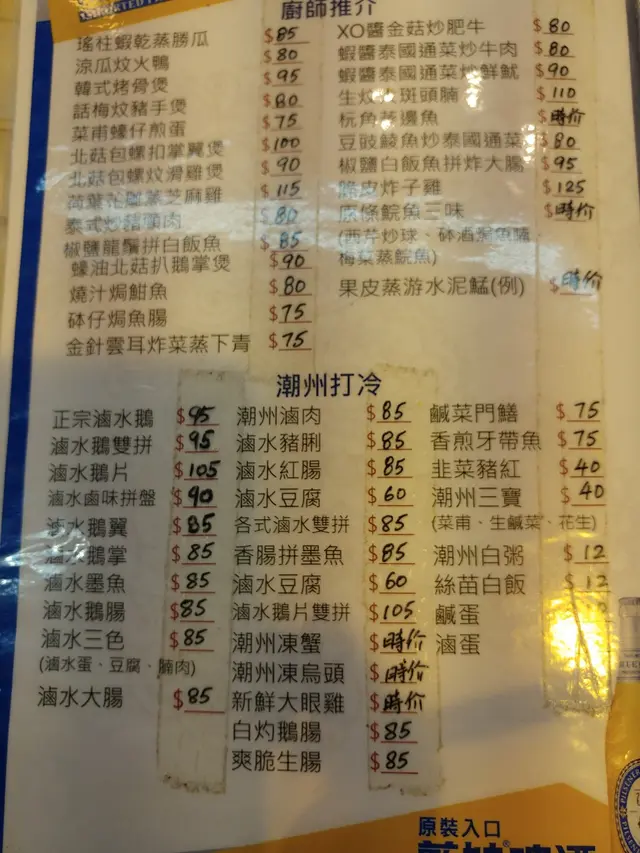 廚師推介
瑤柱蝦乾蒸勝瓜 $85
涼瓜炆火鴨 $80
韓式烤骨煲 $95
話梅炆豬手煲 $80
菜甫蠔仔煎蛋 $75
北菇包螺扣掌翼煲 $100
北菇包螺炆滑雞煲 $90
荷葉 蒸芝麻雞 $115
泰式炒豬頸肉 $80
椒鹽龍鬚拼白飯魚 $85
蠔油北菇扒鵝掌煲 $90
燒汁焗魽魚 $80
砵仔焗魚腸 $75
金針雲耳炸菜蒸下青 $75
XO醬金菇炒肥牛 $80
蝦醬泰國通菜炒牛肉 $80
蝦醬泰國通菜炒鮮魷 $90
生炆 斑頭腩 $110
蒸邊魚 $時价
豆豉鯪魚炒泰國通菜 $80
椒鹽白飯魚拼炸大腸 $95
脆皮炸子雞 $125
原條鯇魚三味 $時价
(西芹炒球、砵酒焗魚腩
梅菜蒸鯇魚)
果皮蒸游水泥鯭(例) $時价
潮州打冷
正宗滷水鵝 $95
滷水鵝雙拼 $95
滷水鵝片 $105
滷水鹵味拼盤 $90
滷水鵝翼 $85
滷水鵝掌 $85
滷水墨魚 $85
滷水鵝腸 $85
滷水三色 $85
(滷水蛋、豆腐、腩肉)
滷水大腸 $85
潮州滷肉 $85
滷水豬脷 $85
滷水紅腸 $85
滷水豆腐 $60
各式滷水雙拼 $85
香腸拼墨魚 $85
滷水豆腐 $60
滷水鵝片雙拼 $105
潮州凍蟹 $時价
潮州凍烏頭 $時价
新鮮大眼雞 $時价
白灼鵝腸 $85
爽脆生腸 $85
鹹菜門鱔 $75
香煎牙帶魚 $75
韭菜豬紅 $40
潮州三寶 $40
(菜甫、生鹹菜、花生)
潮州白粥 $12
絲苗白飯 $12
鹹蛋
滷蛋
原裝入口